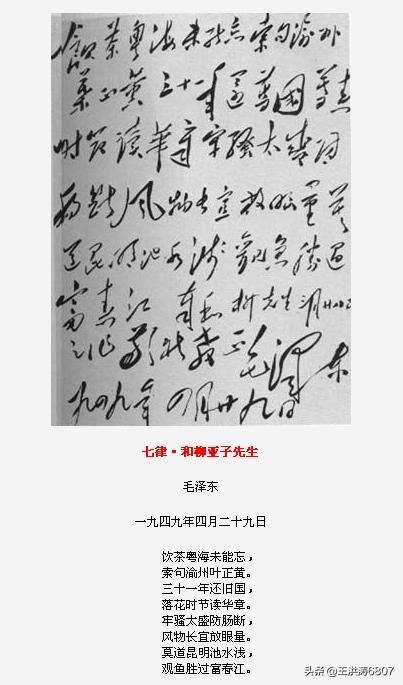 飲茶粤海未能忘索句渝州
葉正黄三十一年還舊國落花
時節讀華章牢騷太盛防
腸斷風物長宜放眼量莫
道昆明池水淺觀魚勝過
富春江 奉和柳先生 三月廿八日
之作敬祈教正毛澤东
一九四九年四月廿九日
七律·和柳亚子先生
毛泽东
一九四九年四月二十九日
饮茶粤海未能忘，
索句渝州叶正黄。
三十一年还旧国，
落花时节读华章。
牢骚太盛防肠断，
风物长宜放眼量。
莫道昆明池水浅，
观鱼胜过富春江。
头条 @王洪涛6807